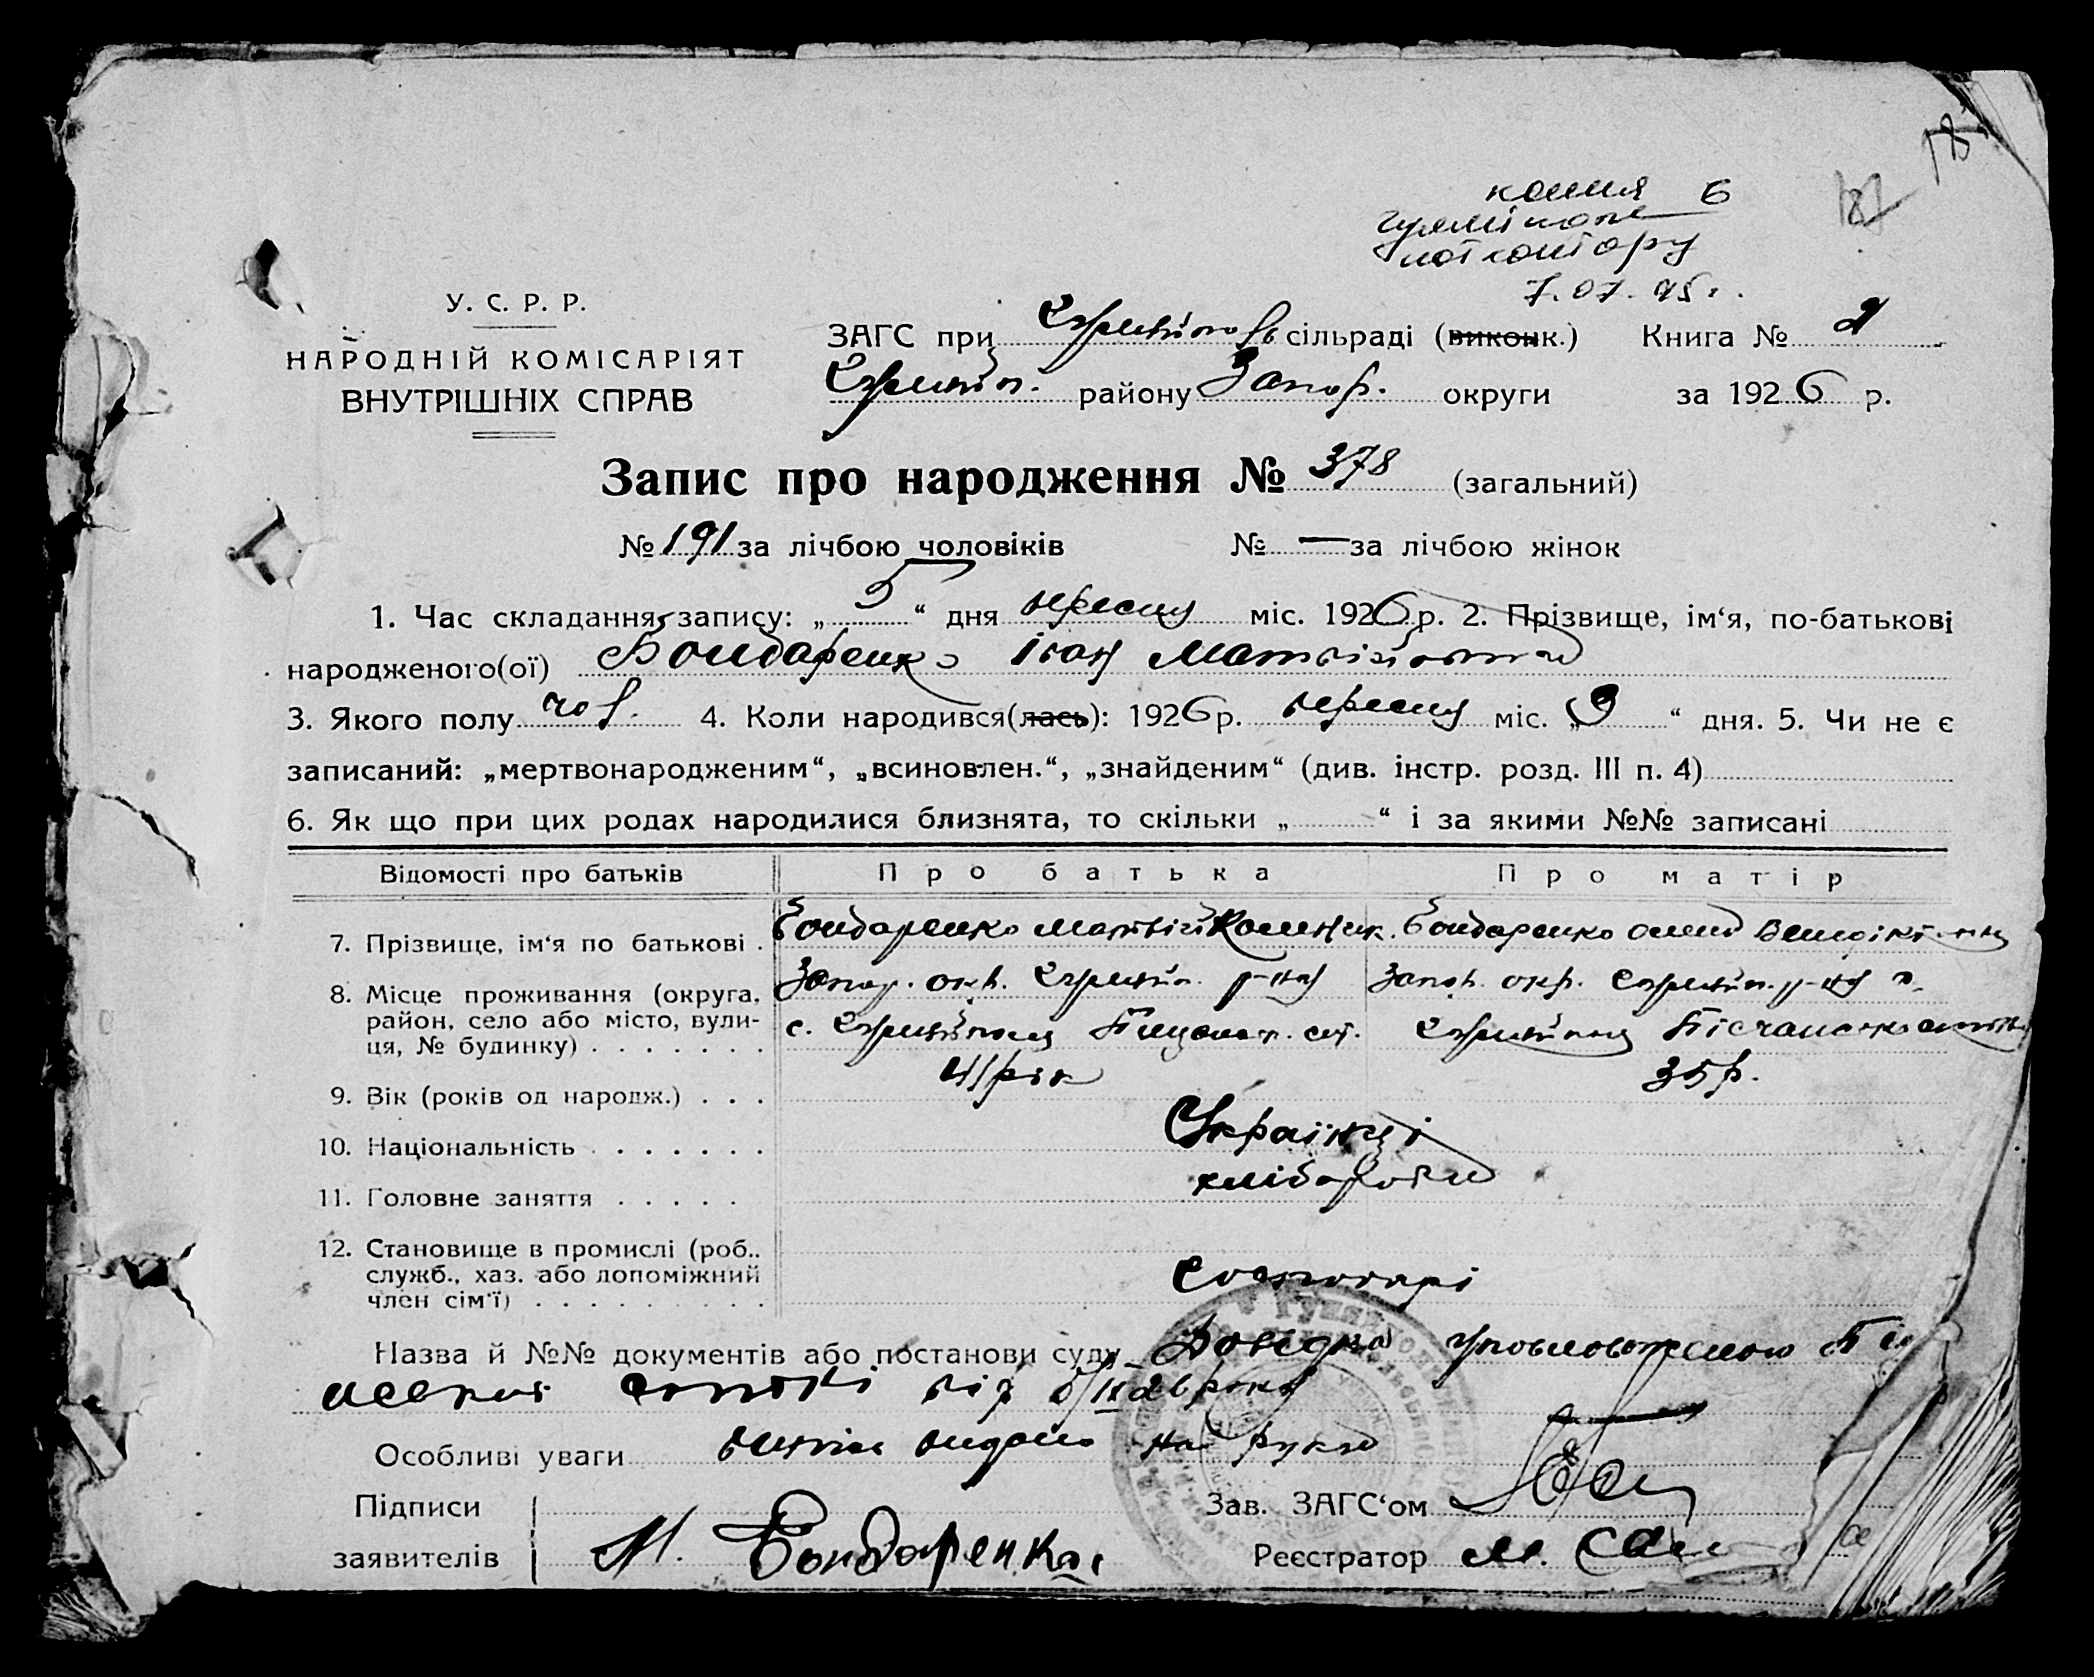 187
копия в
нотконтору
7.07.95г.
У. С. Р. Р.
НАРОДНІЙ КОМІСАРІЯТ
ВНУТРІШНІХ СПРАВ
ЗАГС при сільраді (виконк.) Книга № 2
району Запор. округи за 1926 р.
Запис про народження № 378 (загальний)
№ 191 за лічбою чоловіків № — за лічбою жінок
1. Час складання запису: „ 5 “ дня вересня міс. 1926 р. 2. Прізвище, ім‘я, по-батькові
народженого(ої) Бондаренко Іван Матвійович
3. Якого полу чол. 4. Коли народився(лась): 1926 р. вересня міс. „ 3 “ дня. 5. Чи не є
записаний: „мертвонародженим“, „всиновлен.“, „знайденим“ (див. інстр. розд. III п. 4)
6. Як що при цих родах народилися близнята, то скільки „ “ і за якими №№ записані
Відомості про батьків Про батька Про матір
7. Прізвище, ім‘я по батькові . Бондаренко Матвій Бондаренко
8. Місце проживання (округа, Запор. окр. р-ну Запор. окр. р-ну
район, село або місто, вули- с.
ця, № будинку) . . . . . . .
9. Вік (років од народж.) . . . 41 рік 35 р.
10. Національність . . . . . . . Українці
11. Головне заняття . . . . . хлібороби
12. Становище в промислі (роб.,
служб., хаз. або допоміжний
член сім‘ї) . . . . . . . . . господарі
Назва й №№ документів або постанови суду Довідка уповноваженого
сотні від 5/IX 26 року
Особливі уваги витяг видано на руки
Підписи Зав. ЗАГС‘ом
заявителів М. Бондаренко Реєстратор М.